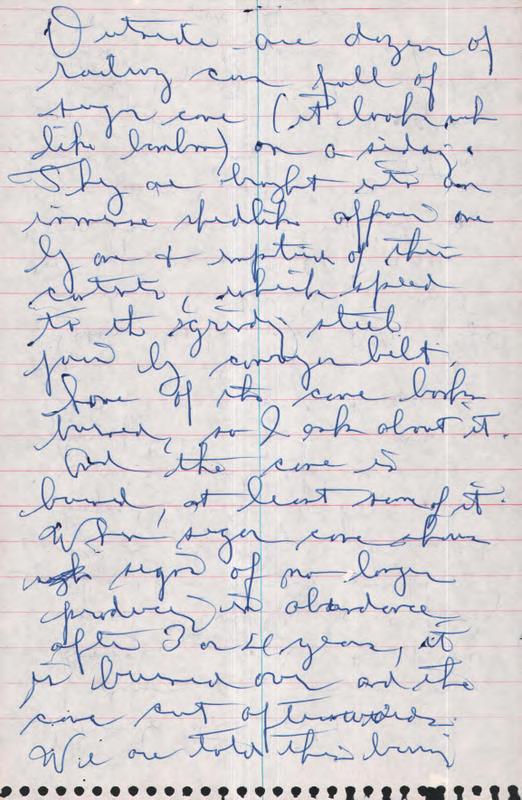 Outside are dozens of
railway cars full of
sugar cane (it looks much
like bamboo) on a siding.
They are brought into an
immense shedlike affair one
by one & emptied of their
contents, which speed
to the grinding steel
jaws by conveyor belt.
Some of the cane looks
burned, so I ask about it.
And the cane is
burned, at least some of it.
When sugar cane shows
signs of no longer
producing in abundance
after 3 or 4 years, it
is burned over and the
cane cut afterwards.
We are told this burning